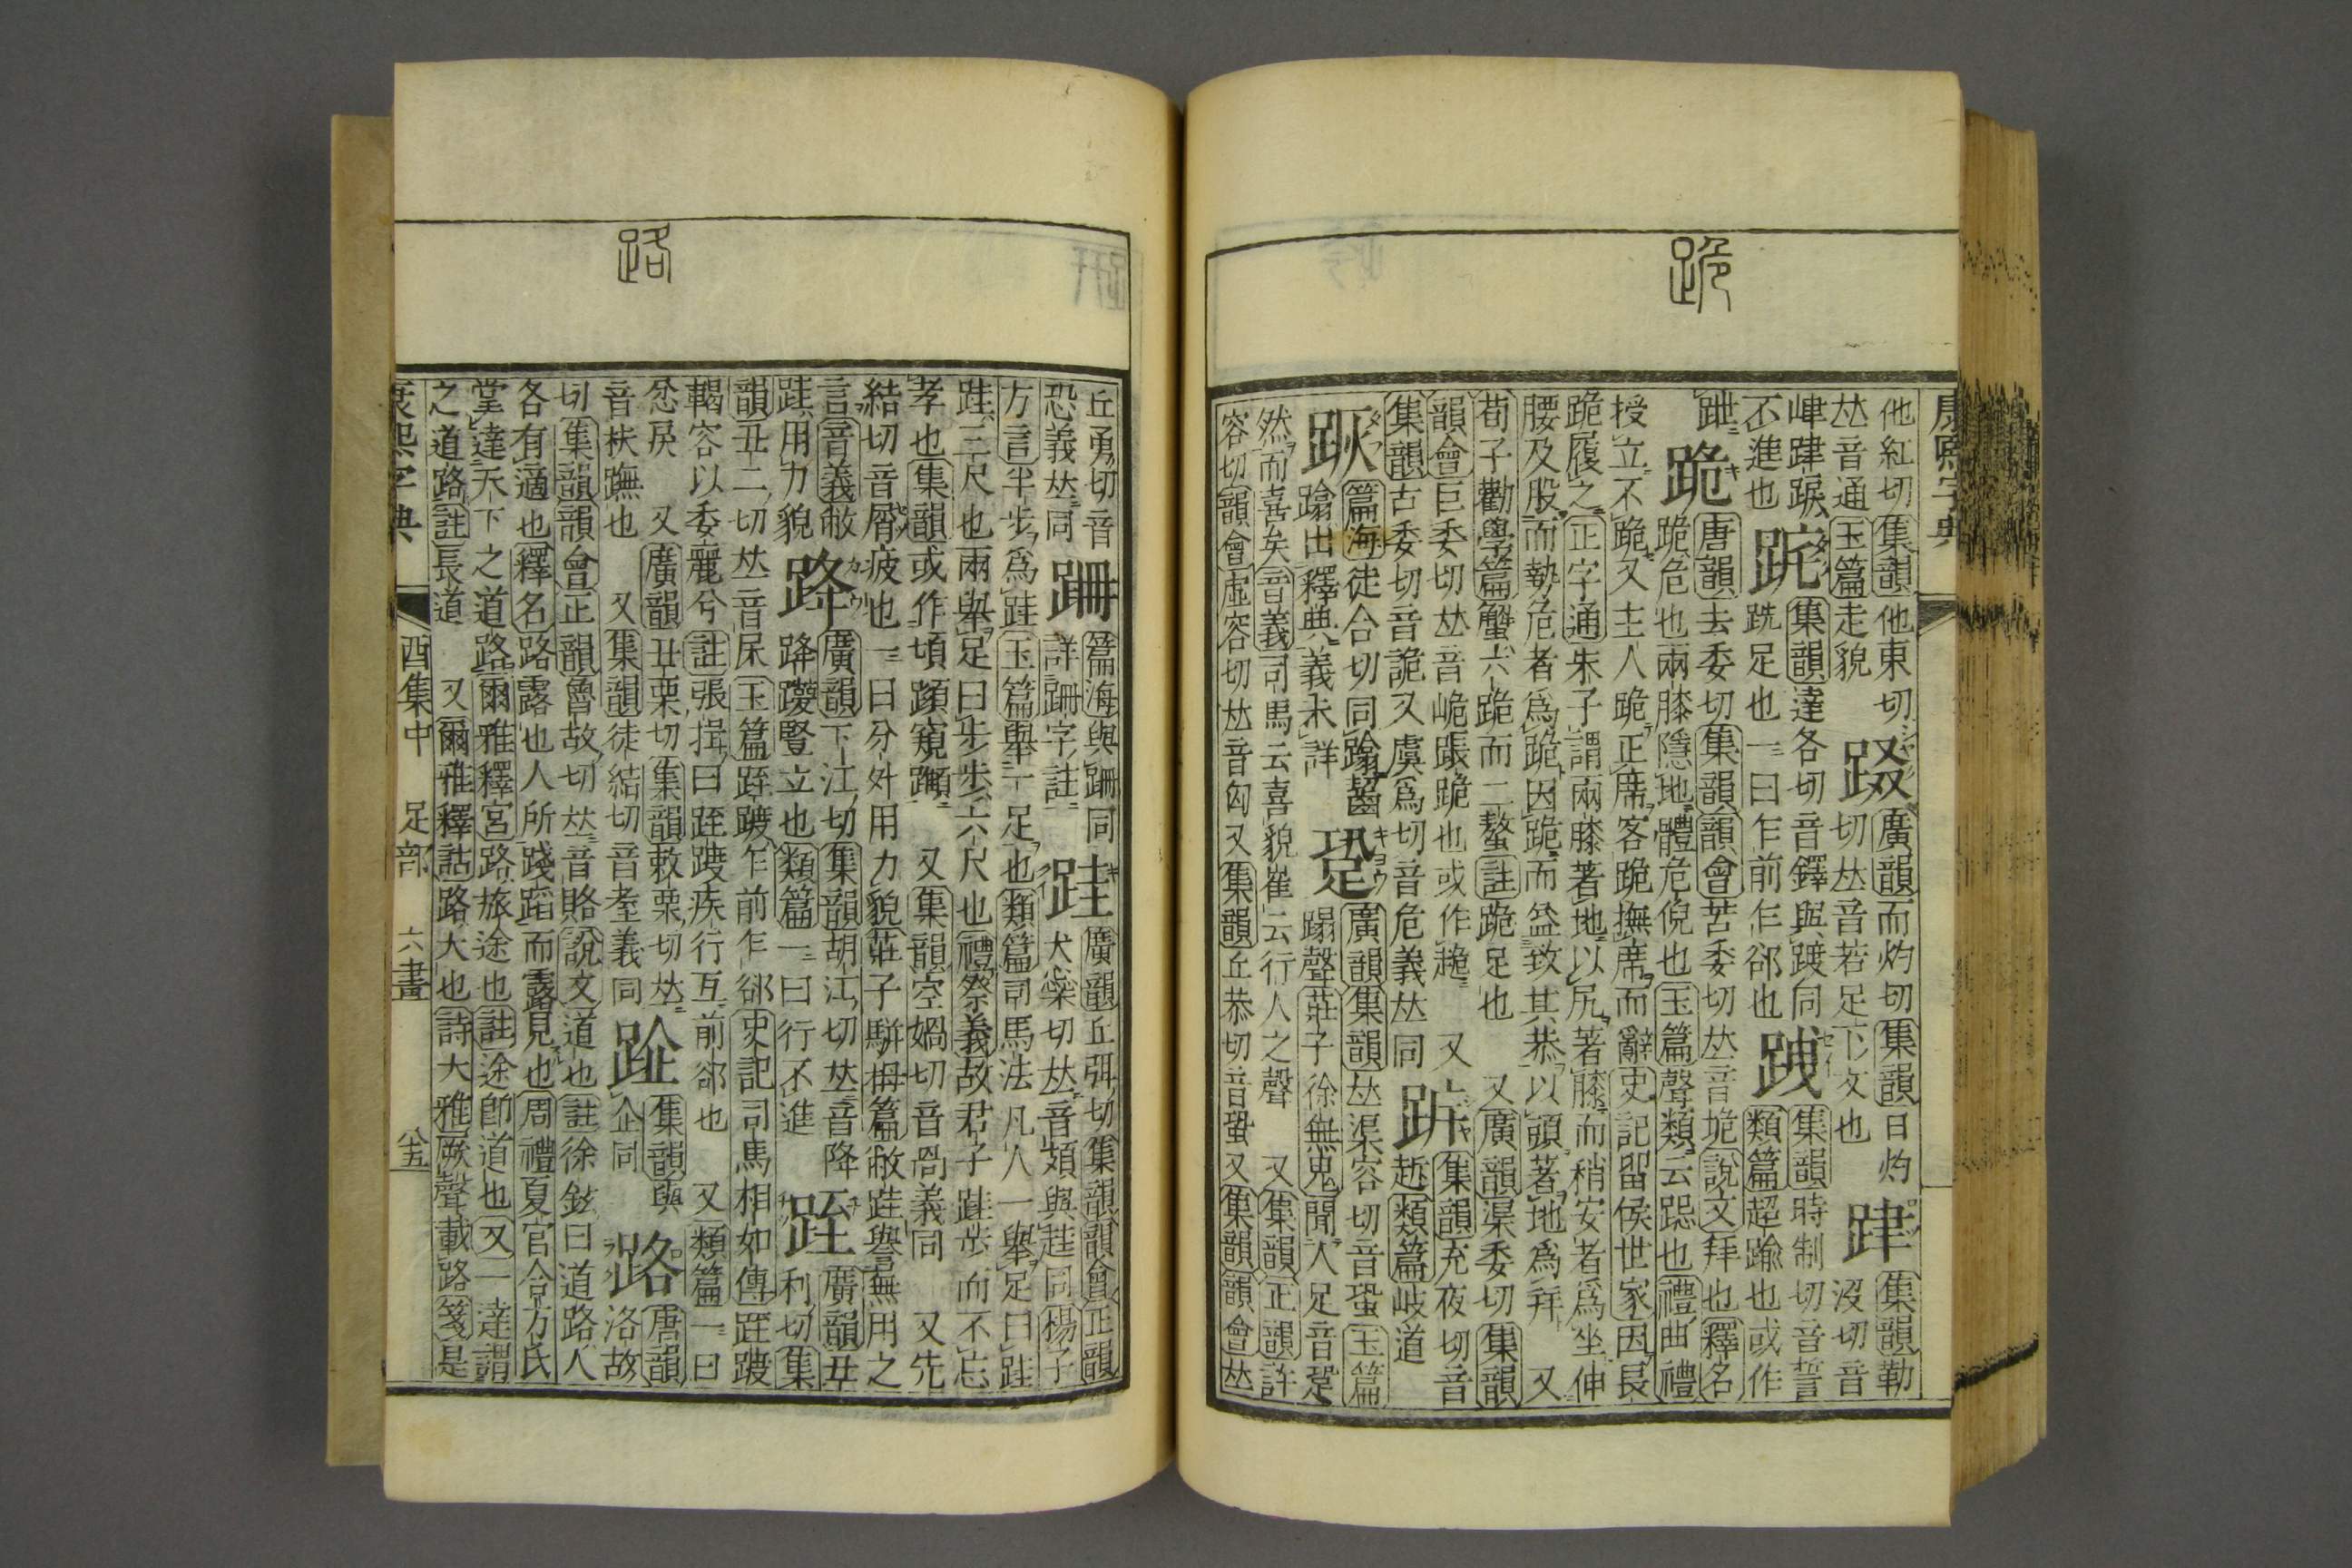 跪
康熙字典
他紅切集韻他東切
𠀤音通玉篇走貌
廣韻而灼切集韻日灼
切𠀤音若足下文也
集韻勒
沒切音
不進也
集韻達各切音鐸與踱同
跣足也一曰乍前乍郤也
跩
集韻時制切音誓
類篇超踰也或作
跇
跪
唐韻去委切集韻韻會苦委切𠀤音垝說文拜也釋名
跪危也兩膝隱地體危倪也玉篇聲類云跽也禮曲禮
授立不跪又主人跪正席客跪撫席而辭史記留侯世家因長
跪履之正字通朱子謂兩膝著地以尻著膝而稍安者爲坐伸
腰及股而勢危者爲跪因跪而益致其恭以頭著地爲拜又
荀子勸學篇蟹六跪而二螯註跪足也又廣韻渠委切集韻
韻會巨委切𠀤音㟴䟫跪也或作𧻜又
集韻古委切音詭又虞爲切音危義𠀤同
集韻充夜切音
趚類篇岐道
篇海徒合切同
蹹出釋典義未詳
跫
廣韻集韻𠀤渠容切音蛩玉篇
蹋聲莊子徐無鬼聞人足音跫
然而喜矣音義司馬云喜貌崔云行人之聲又集韻正韻許
容切韻會虛容切𠀤音匈又集韻丘恭切音蛩又集韻韻會𠀤
路
丘勇切音
恐義𠀤同
跚
篇海與跚同
詳跚字註
跬
廣韻丘弭切集韻韻會正韻
犬橤切𠀤音頍與䞨同楊子
方言半步爲跬玉篇舉一足也類篇司馬法凡人一舉足曰跬
跬三尺也兩舉足曰步步六尺也禮祭義故君子跬步而不忘
孝也集韻或作頃蹞窺𨇨又集韻空媧切音咼義同又先
結切音屑疲也一曰分外用力貌莊子駢拇篇敝跬譽無用之
言音義敝
跬用力貌
跭
廣韻下江切集韻胡江切𠀤音降
跭䠼豎立也類篇一曰行不進
跮
廣韻丑
利切集
韻丑二切𠀤音𡱁玉篇跮踱乍前乍郤史記司馬相如傳跮踱
輵容以委麗兮註張揖曰跮踱疾行互前郤也又類篇一曰
忿戾又廣韻丑栗切集韻敕栗切𠀤
音抶踇也又集韻徒結切音耊義同
跐
集韻與
企同
路
唐韻
洛故
切集韻韻會正韻魯故切𠀤音賂說文道也註徐鉉曰道路人
各有適也釋名路露也人所踐蹈而露見也周禮夏官合方氏
掌達天下之道路爾雅釋宮路旅途也註途卽道也又一達謂
之道路註長道又爾雅釋詁路大也詩大雅厥聲載路箋是
康熙字典
酉集中
足部
六畫